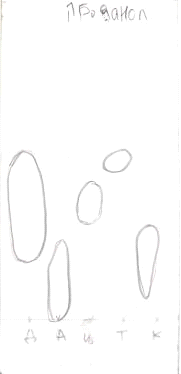 Пропанол
Д А Ц Т К